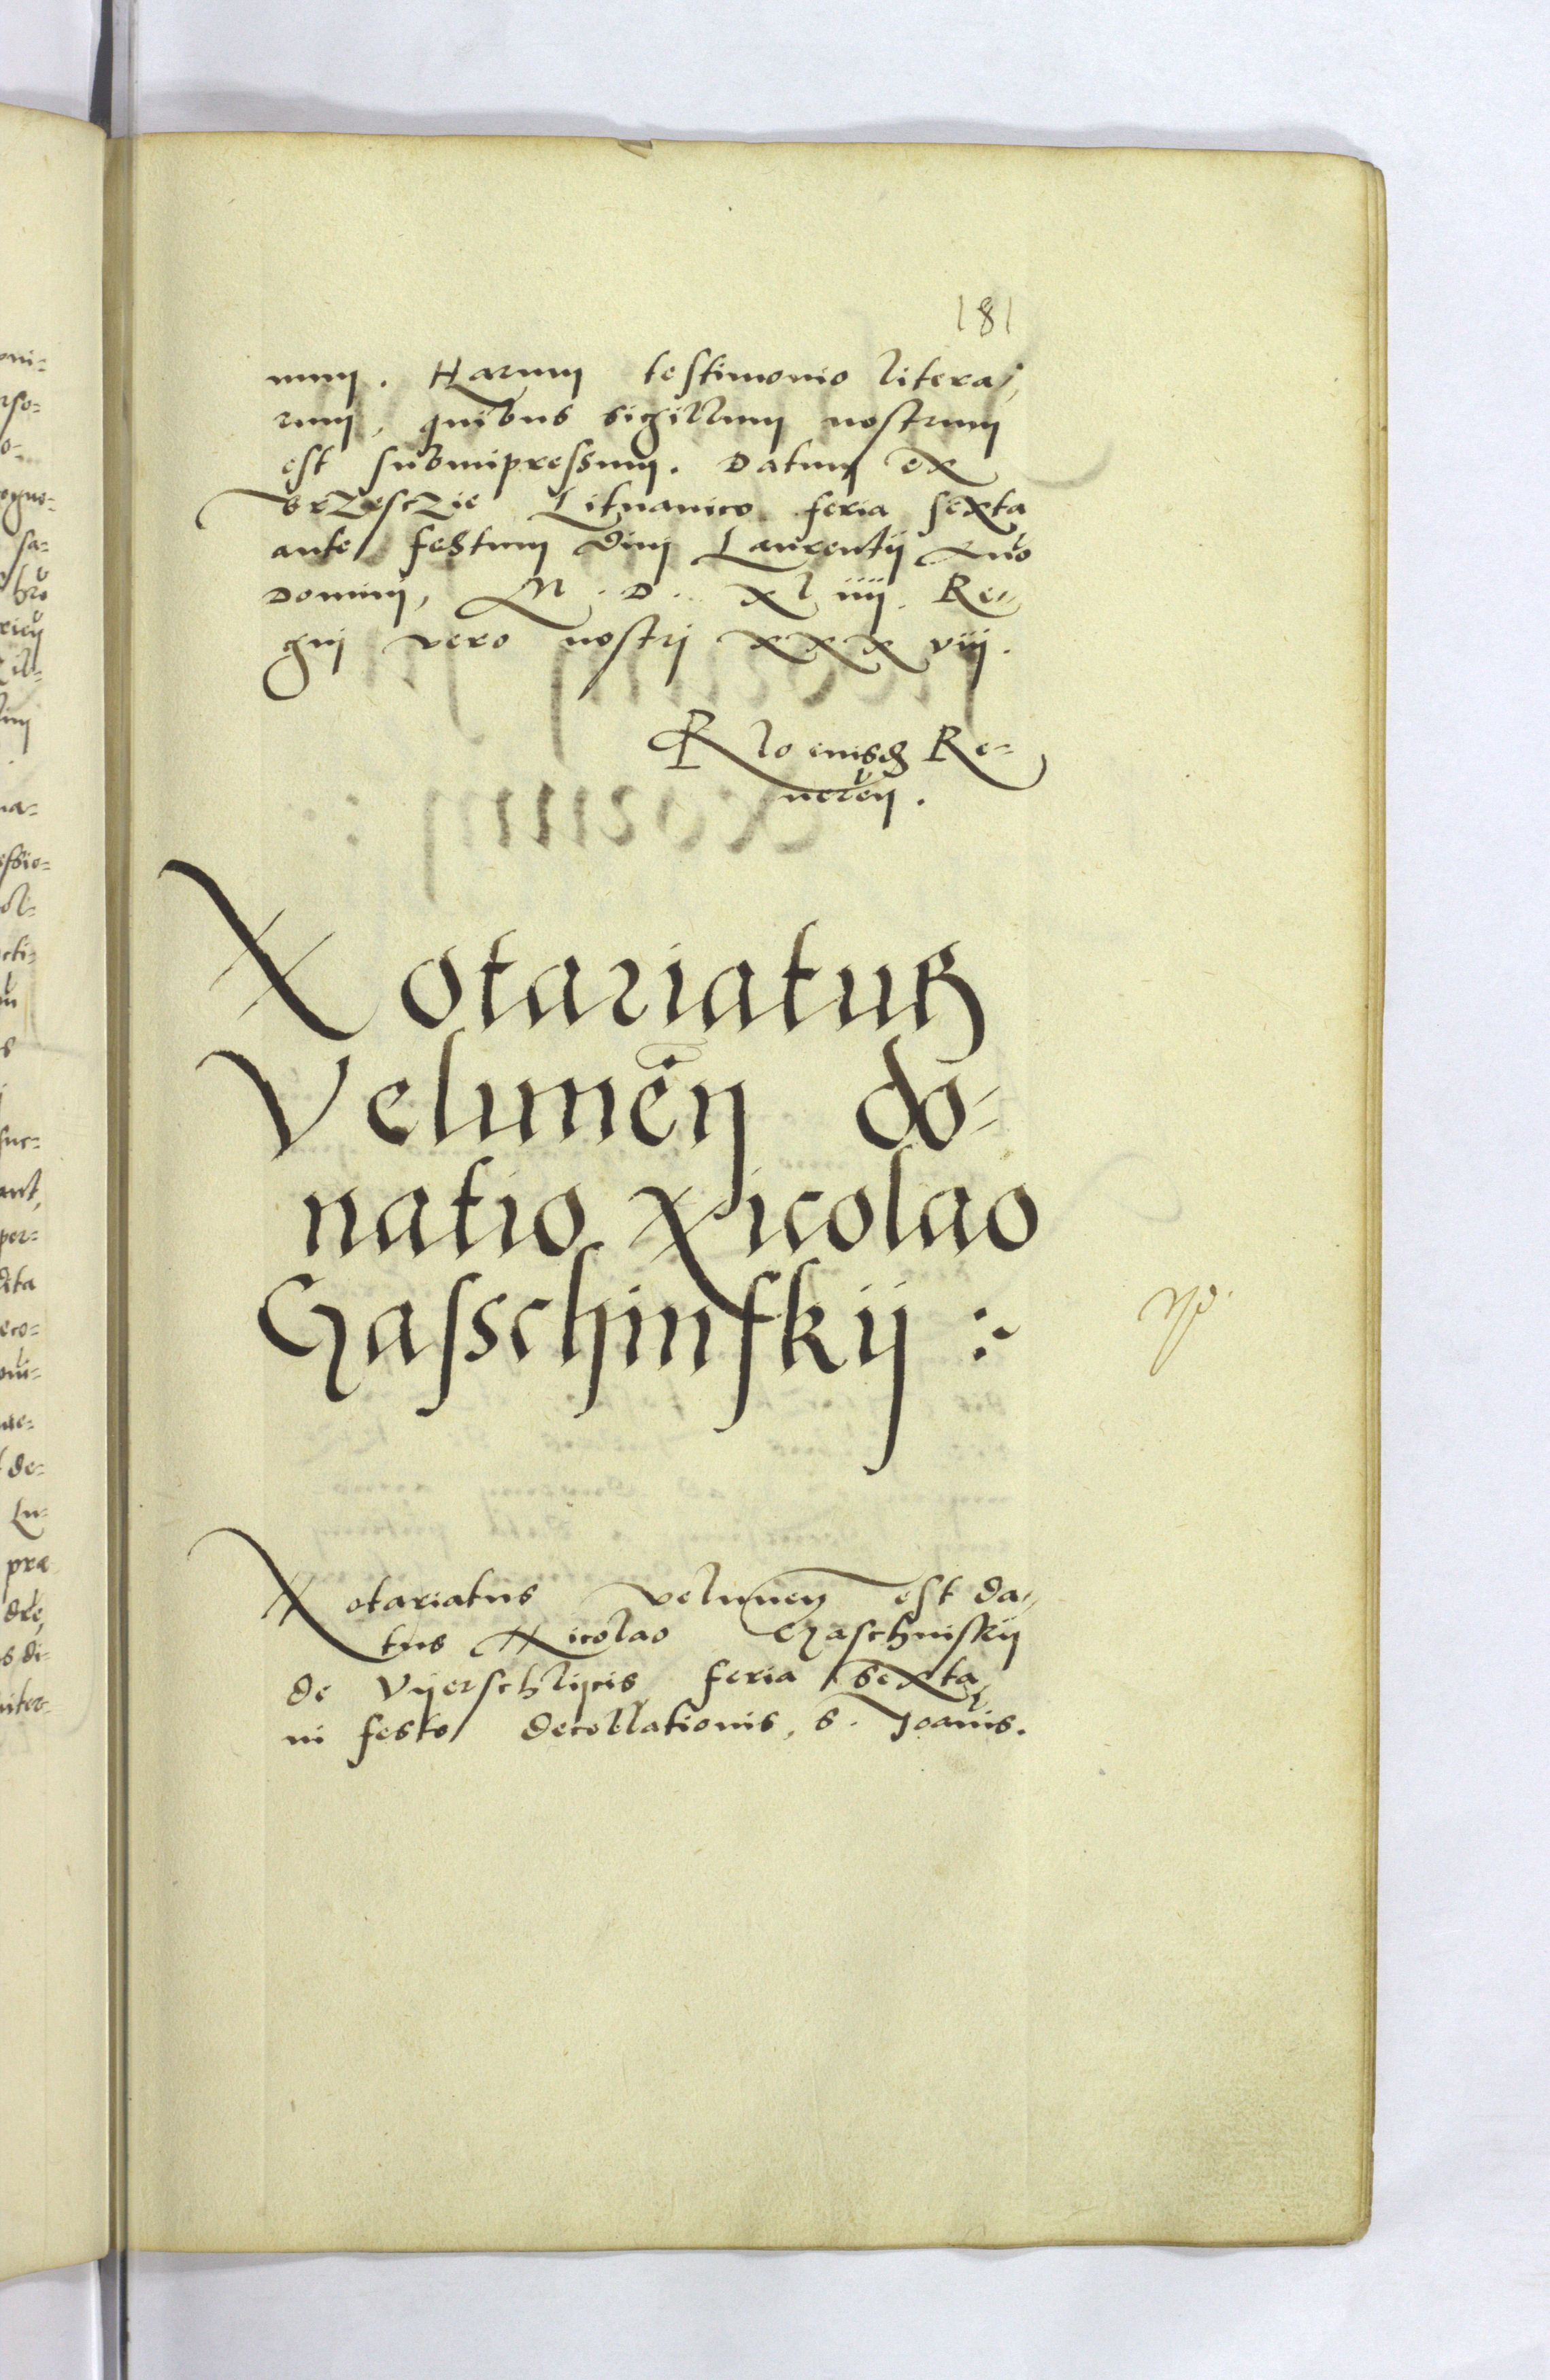 181
num. Harum testimonio litera,
rum, quibus sigillum nostrum
est subimpressum. Datum ex
brzesczie Lituanico feria sexta
ante festum divi Laurentij Anno
Domini, M. D. xl iiij. Re-
gnj vero nostrj xxx viij.
Re-
Notariatus
Velumen do-
natio Nicolao
Gasschinskij :
Notariatus velumen est da,
tus Nicolao Gaschinskij
de Vyerschlijcis feria sexta
in festo decollationis, s. Joannis.